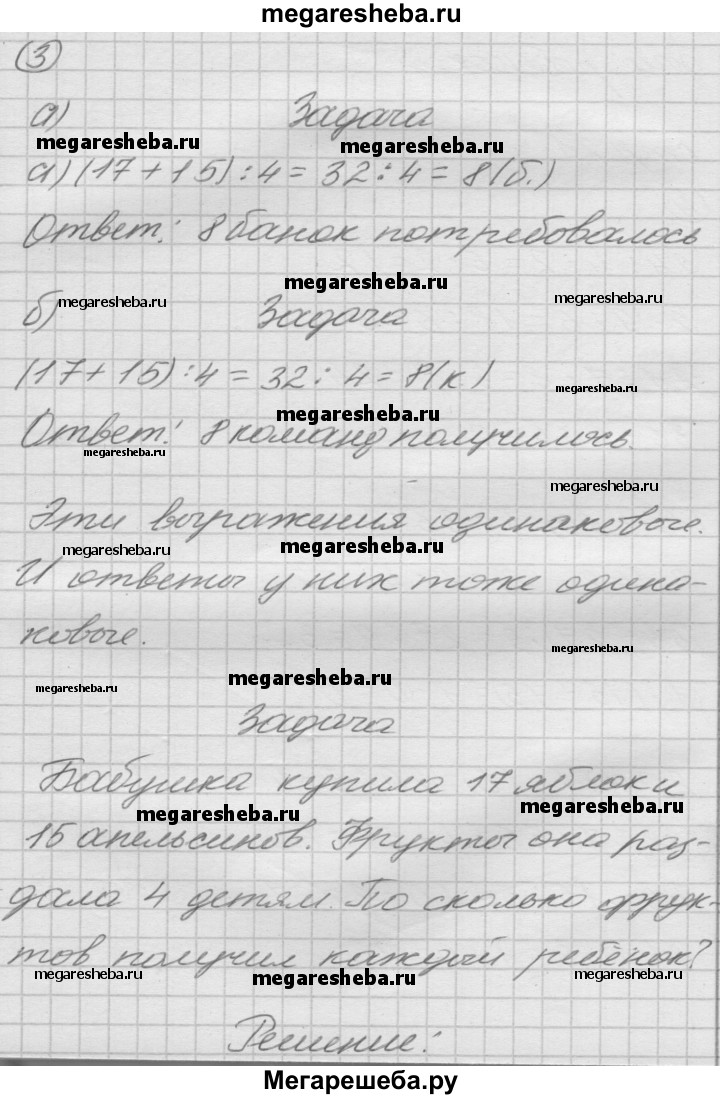 megaresheba.ru
3
а) Задача
megaresheba.ru megaresheba.ru
а) (17+15):4=32:4=8(б.)
Ответ: 8 банок потребовалось
megaresheba.ru
megaresheba.ru megaresheba.ru
б) Задача
(17+15):4=32:4=8(к)
megaresheba.ru
megaresheba.ru
Ответ: 8 команд получилось.
megaresheba.ru
megaresheba.ru
Эти выражения одинаковые.
megaresheba.ru megaresheba.ru
И ответы у них тоже одина-
ковые.
megaresheba.ru
megaresheba.ru megaresheba.ru
Задача
Бабушка купила 17 яблок и
megaresheba.ru megaresheba.ru
15 апельсинов. Фрукты она раз-
дала 4 детям. По сколько фрук-
тов получил каждый ребёнок?
megaresheba.ru megaresheba.ru megaresheba.ru
Решение:
Мегарешеба.ру